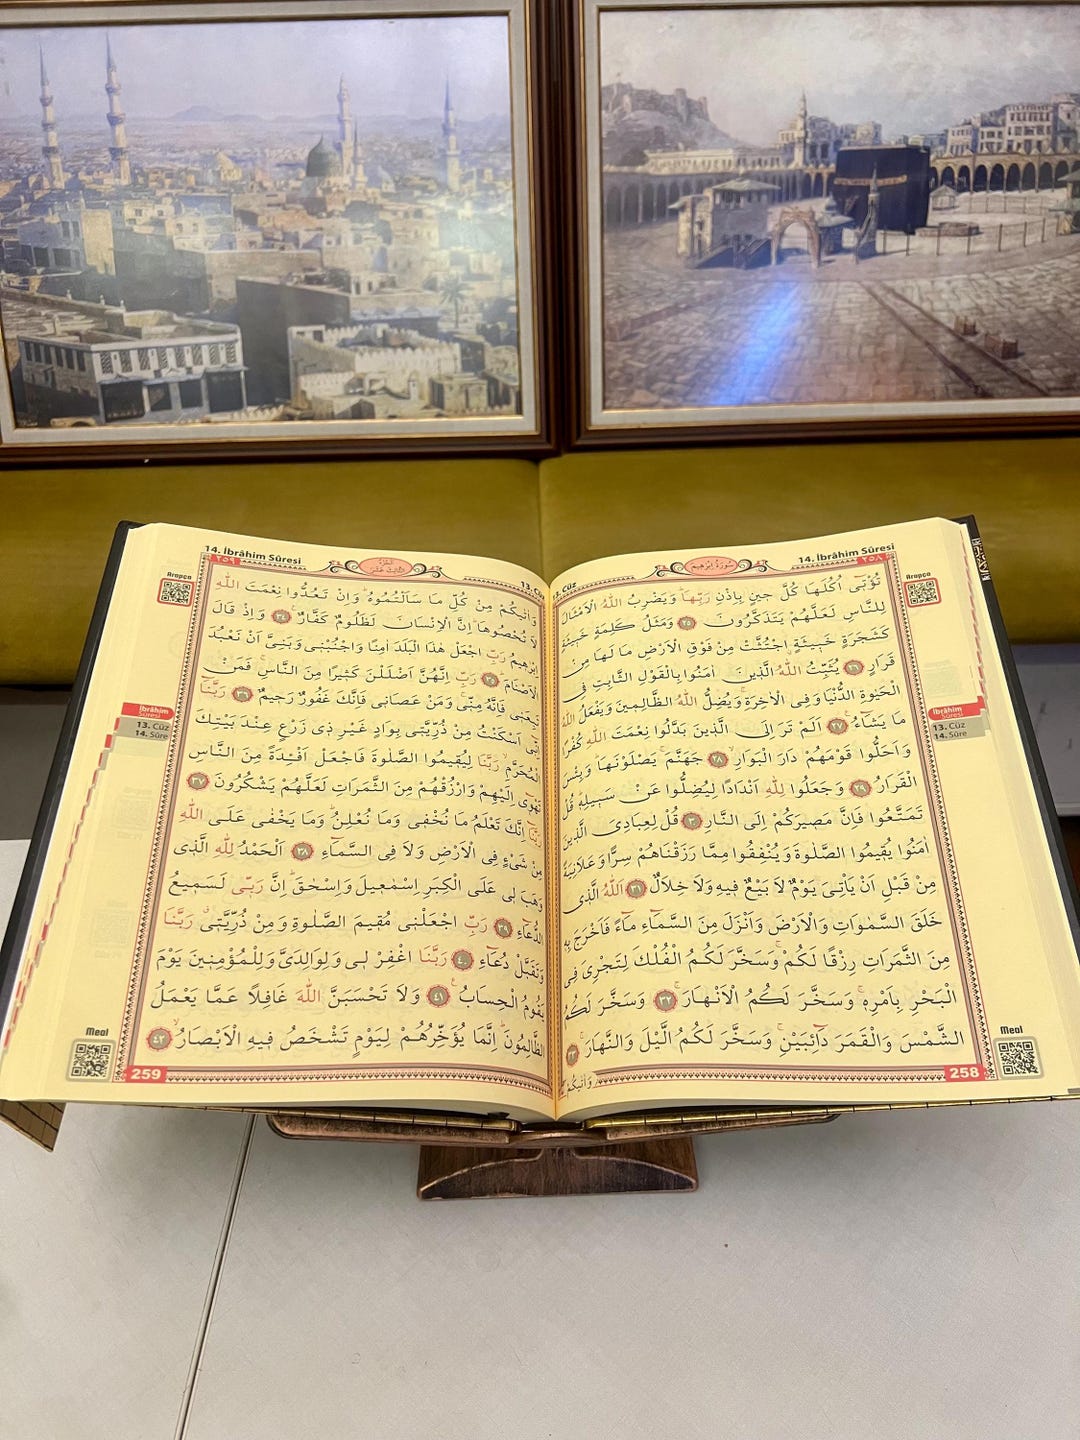 14. İbrâhim Sûresi
٢٥٨
سُورَةُ اِبْرٰهٖيمَ
Cüz
تُؤْتٖٓي اُكُلَهَا كُلَّ حٖينٍ بِاِذْنِ رَبِّهَاۜ وَيَضْرِبُ اللّٰهُ الْاَمْثَالَ
لِلنَّاسِ لَعَلَّهُمْ يَتَذَكَّرُونَ ﴿٢٥﴾ وَمَثَلُ كَلِمَةٍ خَبٖيثَةٍ
كَشَجَرَةٍ خَبٖيثَةٍۨ اجْتُثَّتْ مِنْ فَوْقِ الْاَرْضِ مَا لَهَا مِنْ
قَرَارٍ ﴿٢٦﴾ يُثَبِّتُ اللّٰهُ الَّذٖينَ اٰمَنُوا بِالْقَوْلِ الثَّابِتِ فِي
الْحَيٰوةِ الدُّنْيَا وَفِي الْاٰخِرَةِۚ وَيُضِلُّ اللّٰهُ الظَّالِمٖينَ وَيَفْعَلُ اللّٰهُ
مَا يَشَٓاءُ ﴿٢٧﴾ اَلَمْ تَرَ اِلَى الَّذٖينَ بَدَّلُوا نِعْمَتَ اللّٰهِ كُفْرًا
وَاَحَلُّوا قَوْمَهُمْ دَارَ الْبَوَارِۙ ﴿٢٨﴾ جَهَنَّمَۚ يَصْلَوْنَهَاۜ وَبِئْسَ
الْقَرَارُ ﴿٢٩﴾ وَجَعَلُوا لِلّٰهِ اَنْدَادًا لِيُضِلُّوا عَنْ سَبٖيلِهٖۜ قُلْ
تَمَتَّعُوا فَاِنَّ مَصٖيرَكُمْ اِلَى النَّارِ ﴿٣٠﴾ قُلْ لِعِبَادِيَ الَّذٖينَ
اٰمَنُوا يُقٖيمُوا الصَّلٰوةَ وَيُنْفِقُوا مِمَّا رَزَقْنَاهُمْ سِرًّا وَعَلَانِيَةً
مِنْ قَبْلِ اَنْ يَأْتِيَ يَوْمٌ لَا بَيْعٌ فٖيهِ وَلَا خِلَالٌ ﴿٣١﴾ اَللّٰهُ الَّذٖي
خَلَقَ السَّمٰوَاتِ وَالْاَرْضَ وَاَنْزَلَ مِنَ السَّمَٓاءِ مَٓاءً فَاَخْرَجَ بِهٖ
مِنَ الثَّمَرَاتِ رِزْقًا لَكُمْۚ وَسَخَّرَ لَكُمُ الْفُلْكَ لِتَجْرِيَ فِي
الْبَحْرِ بِاَمْرِهٖۚ وَسَخَّرَ لَكُمُ الْاَنْهَارَۚ ﴿٣٢﴾ وَسَخَّرَ لَكُمُ
الشَّمْسَ وَالْقَمَرَ دَٓائِبَيْنِۚ وَسَخَّرَ لَكُمُ الَّيْلَ وَالنَّهَارَۚ ﴿٣٣﴾
وَاٰتٰيكُمْ
258
Arapça
İbrahim
Sûresi
13. Cüz
14. Sûre
Meal
14. İbrâhim Sûresi
٢٥٩
اَلْجُزْءُ الثَّالِثَ عَشَرَ
13. Cüz
وَاٰتٰيكُمْ مِنْ كُلِّ مَا سَاَلْتُمُوهُۜ وَاِنْ تَعُدُّوا نِعْمَتَ اللّٰهِ
لَا تُحْصُوهَاۜ اِنَّ الْاِنْسَانَ لَظَلُومٌ كَفَّارٌ۟ ﴿٣٤﴾ وَاِذْ قَالَ
اِبْرٰهٖيمُ رَبِّ اجْعَلْ هٰذَا الْبَلَدَ اٰمِنًا وَاجْنُبْنٖي وَبَنِيَّ اَنْ نَعْبُدَ
الْاَصْنَامَۜ ﴿٣٥﴾ رَبِّ اِنَّهُنَّ اَضْلَلْنَ كَثٖيرًا مِنَ النَّاسِۚ فَمَنْ
تَبِعَنٖي فَاِنَّهُ مِنّٖيۚ وَمَنْ عَصَانٖي فَاِنَّكَ غَفُورٌ رَحٖيمٌ ﴿٣٦﴾ رَبَّنَٓا
اِنّٖٓي اَسْكَنْتُ مِنْ ذُرِّيَّتٖي بِوَادٍ غَيْرِ ذٖي زَرْعٍ عِنْدَ بَيْتِكَ
الْمُحَرَّمِۙ رَبَّنَا لِيُقٖيمُوا الصَّلٰوةَ فَاجْعَلْ اَفْـِٔدَةً مِنَ النَّاسِ
تَهْوٖٓي اِلَيْهِمْ وَارْزُقْهُمْ مِنَ الثَّمَرَاتِ لَعَلَّهُمْ يَشْكُرُونَ ﴿٣٧﴾
رَبَّنَٓا اِنَّكَ تَعْلَمُ مَا نُخْفٖي وَمَا نُعْلِنُۜ وَمَا يَخْفٰى عَلَى اللّٰهِ
مِنْ شَيْءٍ فِي الْاَرْضِ وَلَا فِي السَّمَٓاءِ ﴿٣٨﴾ اَلْحَمْدُ لِلّٰهِ الَّذٖي
وَهَبَ لٖي عَلَى الْكِبَرِ اِسْمٰعٖيلَ وَاِسْحٰقَۜ اِنَّ رَبّٖي لَسَمٖيعُ
الدُّعَٓاءِ ﴿٣٩﴾ رَبِّ اجْعَلْنٖي مُقٖيمَ الصَّلٰوةِ وَمِنْ ذُرِّيَّتٖيۗ رَبَّنَا
وَتَقَبَّلْ دُعَٓاءِ ﴿٤٠﴾ رَبَّنَا اغْفِرْ لٖي وَلِوَالِدَيَّ وَلِلْمُؤْمِنٖينَ يَوْمَ
يَقُومُ الْحِسَابُ۟ ﴿٤١﴾ وَلَا تَحْسَبَنَّ اللّٰهَ غَافِلًا عَمَّا يَعْمَلُ
الظَّالِمُونَۜ اِنَّمَا يُؤَخِّرُهُمْ لِيَوْمٍ تَشْخَصُ فٖيهِ الْاَبْصَارُۙ ﴿٤٢﴾
259
Arapça
İbrahim
Sûresi
13. Cüz
14. Sûre
Meal